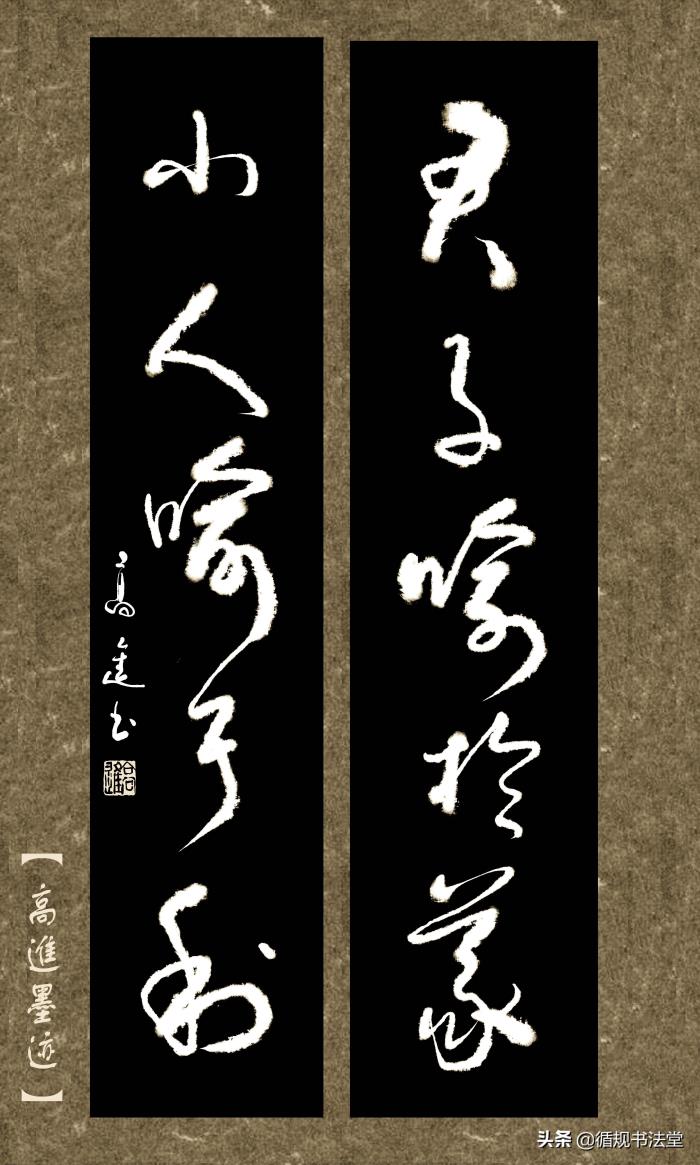 君子喻於義
小人喻于利
高進书
高進
【高進墨迹】
头条 @循规书法堂